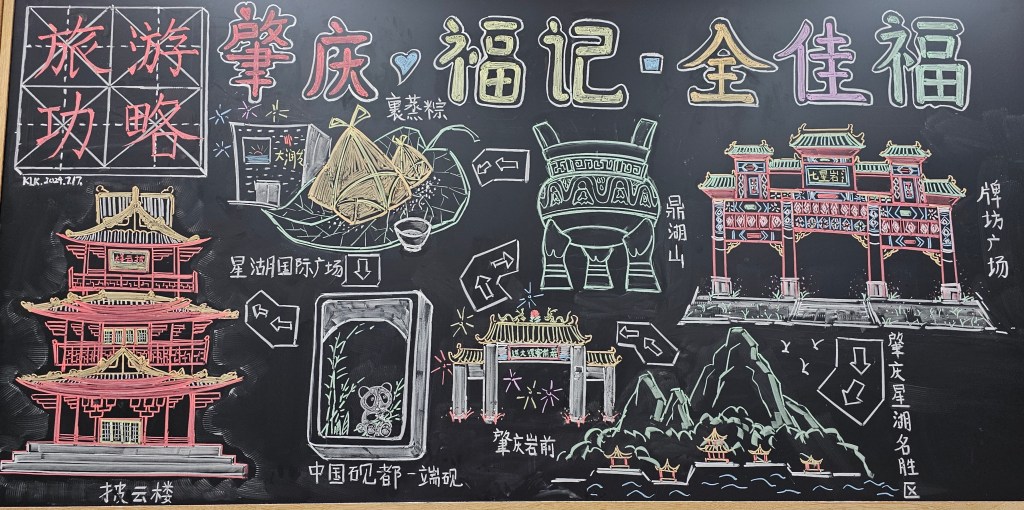 旅游
功略
KLK.2024.7.17.
肇庆·福记·全佳福
裹蒸粽
大润发
星湖国际广场
鼎湖山
七星岩
牌坊广场
披云楼
披云楼
中国砚都-端砚
肇庆岩前
肇庆星湖名胜区